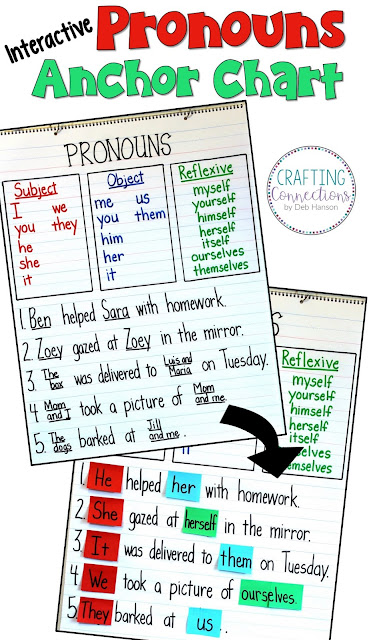 Interactive Pronouns
Anchor Chart
CRAFTING
Connections
by Deb Hanson
PRONOUNS
Subject
I we
you they
he
she
it
Object
me us
you them
him
her
it
Reflexive
myself
yourself
himself
herself
itself
ourselves
themselves
1. Ben helped Sara with homework.
2. Zoey gazed at Zoey in the mirror.
3. The box was delivered to Luis and Maria on Tuesday.
4 Mom and I took a picture of Mom and me.
5. The dogs barked at Jill and me.
S
Reflexive
myself
yourself
himself
herself
itself
selves
emselves
1. He helped her with homework.
2. She gazed at herself in the mirror.
3. It was delivered to them on Tuesday.
4 We took a picture of ourselves.
5 They barked at us.